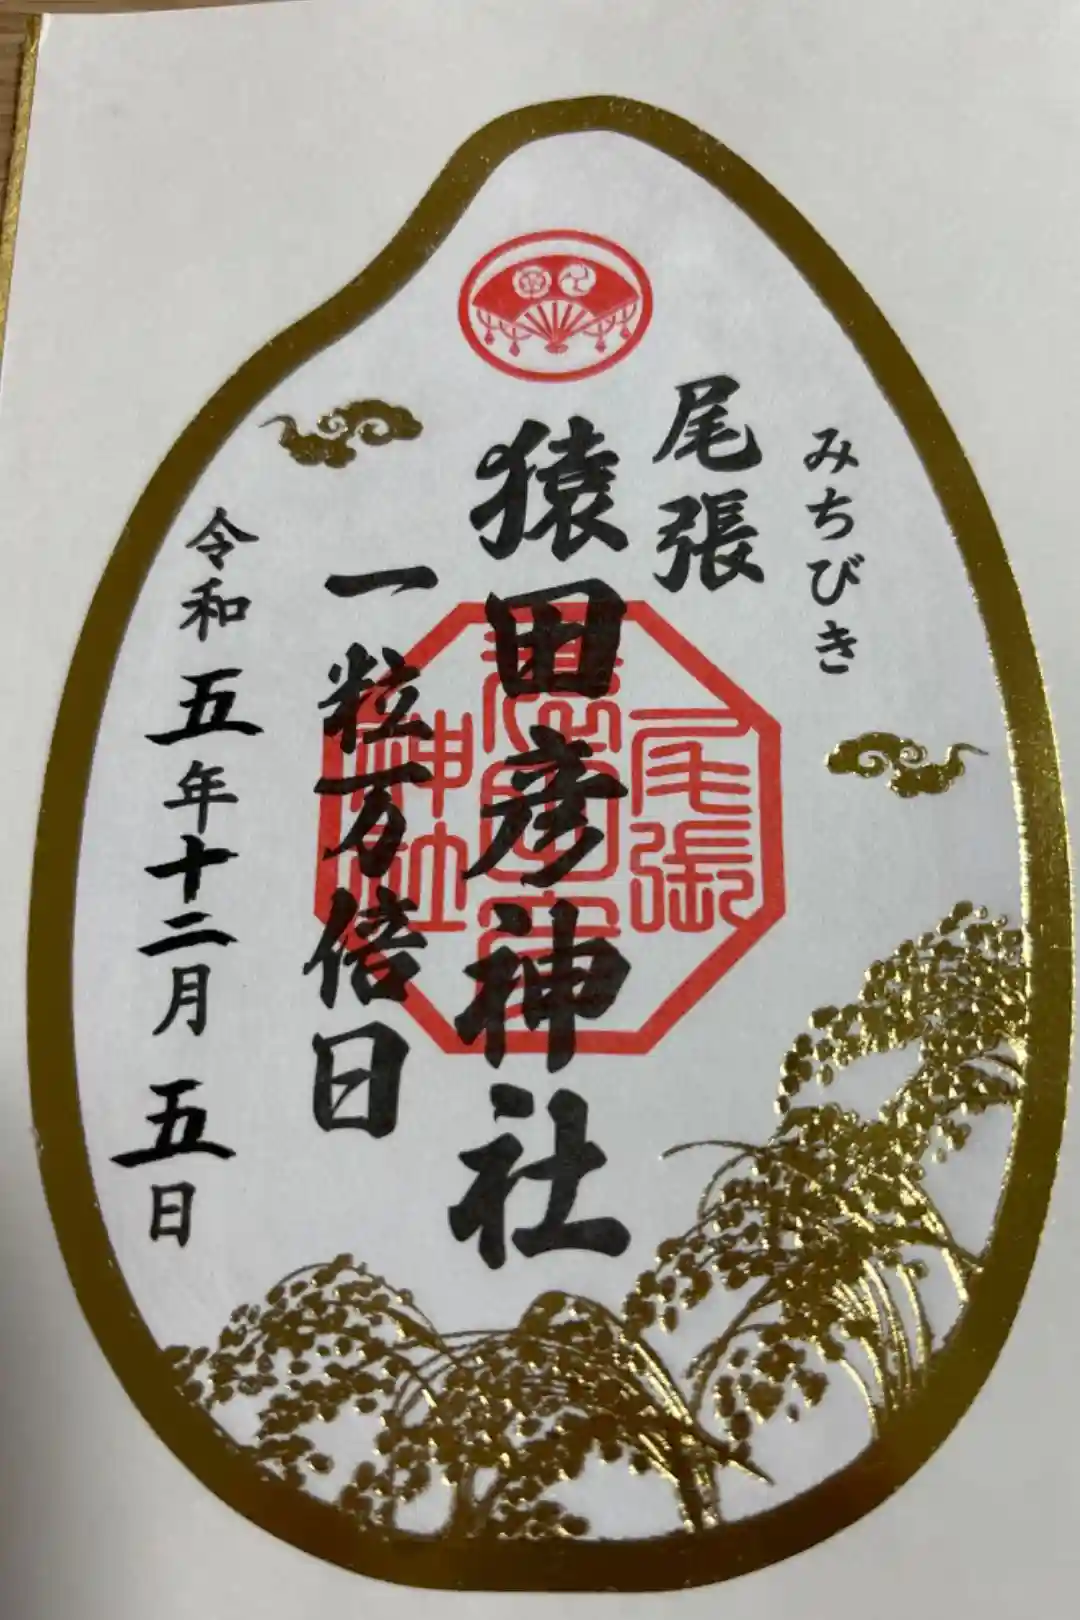 みちびき
尾張
猿田彦神社
一粒万倍日
令和五年十二月五日
尾張
猿田彦
神社